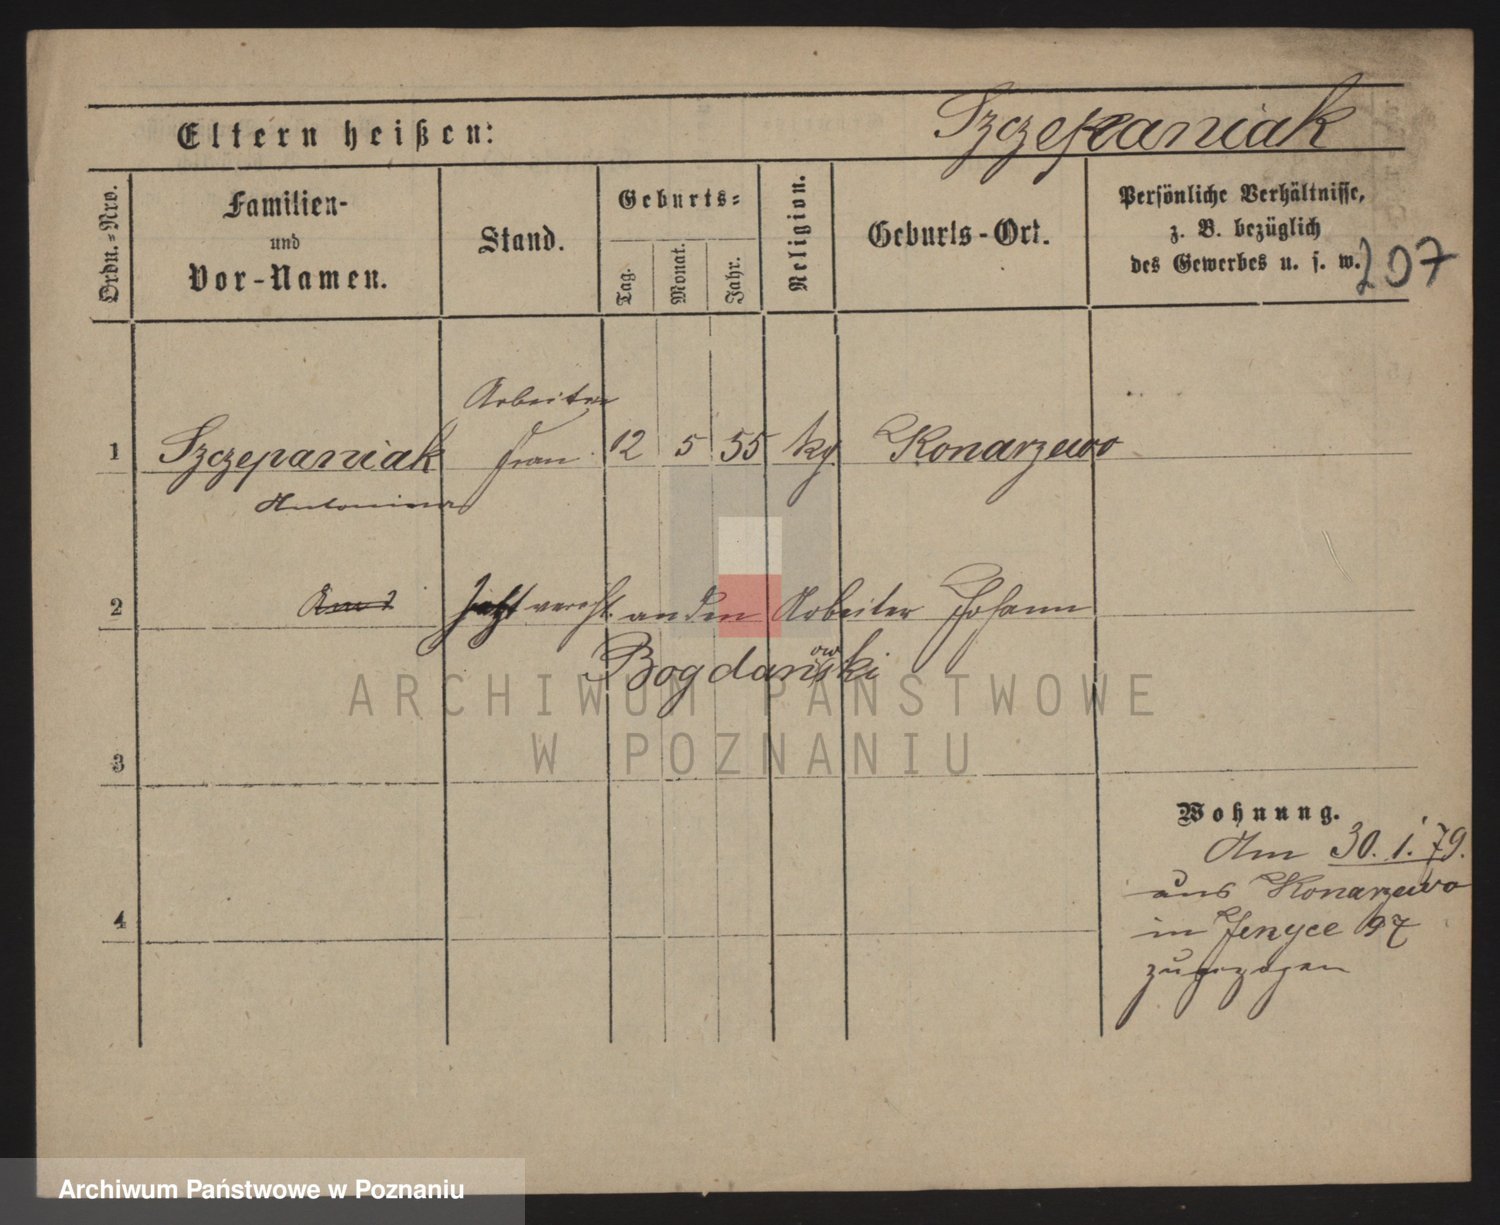 Szczepaniak
Eltern heißen:
Ordn.-Nro.
Familien-
und
Vor-Namen.
Stand.
Geburts-
Tag.
Monat.
Jahr.
Religion.
Geburts-Ort.
Persönliche Verhältnisse,
z. B. bezüglich
des Gewerbes u. s. w.
207
Arbeiter
1 Szczepaniak Frau 12 5 55 kg Konarzewo
Antonina
2 verehl. an den Arbeiter Johann
ow
Bogdański
ARCHIWUM PAŃSTWOWE
W POZNANIU
3
Wohnung.
Am 30. 1. 79.
aus Konarzewo
4
in Jerzyce 97
zugezogen
Archiwum Państwowe w Poznaniu